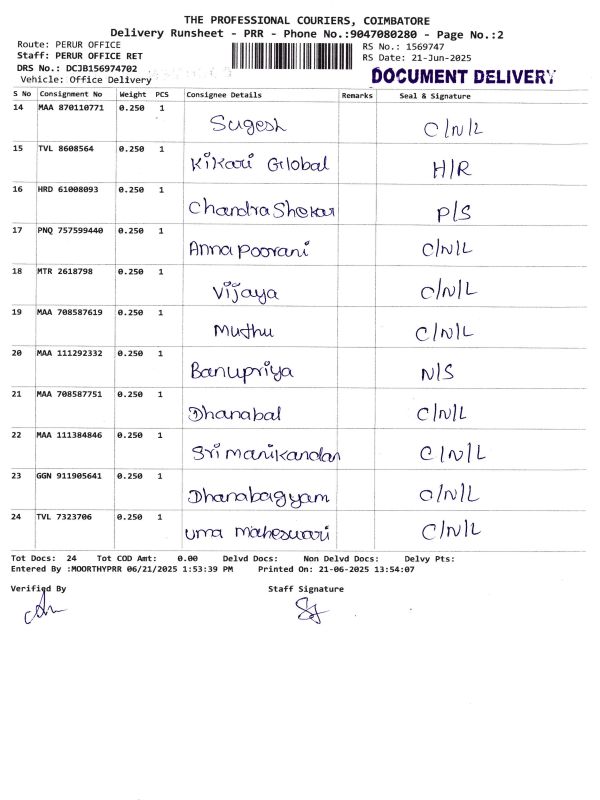 THE PROFESSIONAL COURIERS, COIMBATORE
Delivery Runsheet - PRR - Phone No.:9047080280 - Page No.:2
Route: PERUR OFFICE
Staff: PERUR OFFICE RET
DRS No.: DCJB156974702
Vehicle: Office Delivery
RS No.: 1569747
RS Date: 21-Jun-2025
DOCUMENT DELIVERY
S No Consignment No Weight PCS Consignee Details Remarks Seal & Signature
14 MAA 870110771 0.250 1 Sugesh C/N/L
15 TVL 8608564 0.250 1 Kikani Global H/R
16 HRD 61008093 0.250 1 Chandra Shekar P/S
17 PNQ 757599440 0.250 1 Anna Poorani C/N/L
18 MTR 2618798 0.250 1 Vijaya C/N/L
19 MAA 708587619 0.250 1 Muthu C/N/L
20 MAA 111292332 0.250 1 Banupriya N/S
21 MAA 708587751 0.250 1 Dhanabal C/N/L
22 MAA 111384846 0.250 1 Sri manikandan C/N/L
23 GGN 911905641 0.250 1 Dhanabagyam C/N/L
24 TVL 7323706 0.250 1 uma maheswari C/N/L
Tot Docs: 24 Tot COD Amt: 0.00 Delvd Docs: Non Delvd Docs: Delvy Pts:
Entered By :MOORTHYPRR 06/21/2025 1:53:39 PM Printed On: 21-06-2025 13:54:07
Verified By Staff Signature